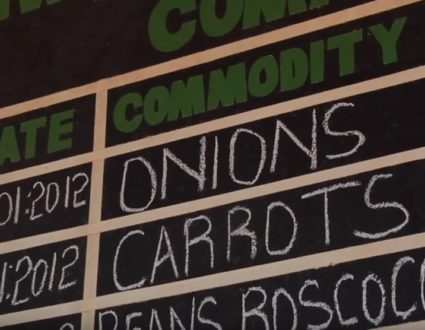 COM
ATE COMMODITY
01:2012 ONIONS
1:2012 CARROTS
BEANS ROSCOCO